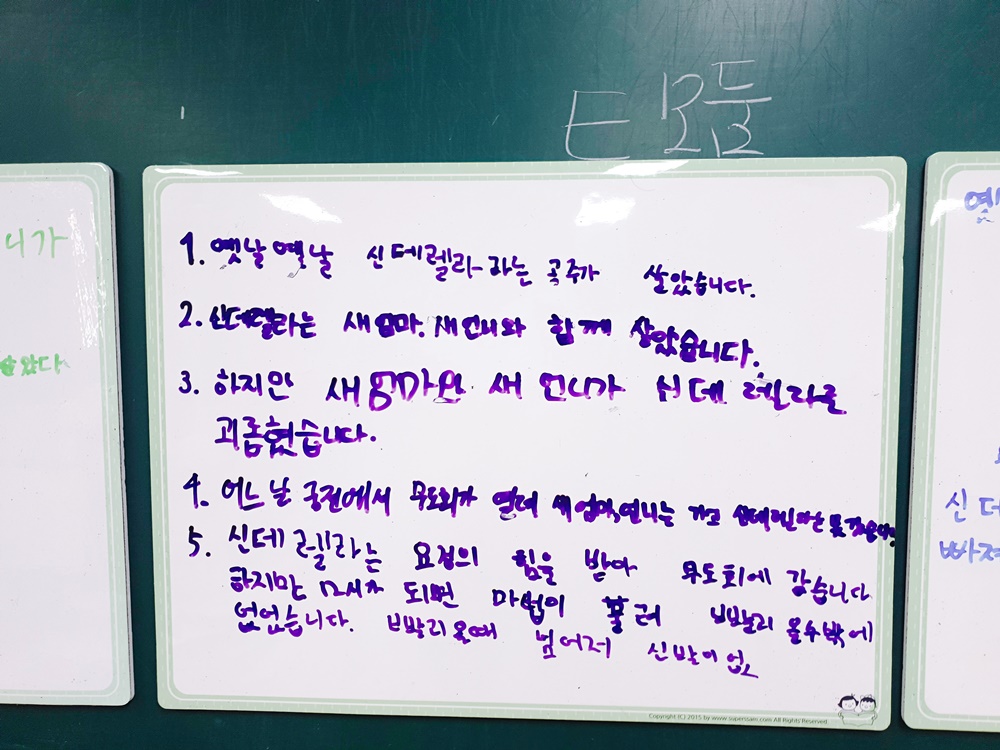 E 모둠
니가
았다
1. 옛날 옛날 신데렐라라는 공주가 살았습니다.
2. 신데렐라는 새엄마. 새언니와 함께 살았습니다.
3. 하지만 새엄마와 새 언니가 신데렐라를
괴롭혔습니다.
4. 어느 날 궁전에서 무도회가 열려 새엄마, 언니는 가고
5. 신데렐라는 요정의 힘을 받아 무도회에 갔습니다
하지만 12시가 되면 마법이 풀려 빨리 올수밖에
없었습니다. 빨리 올때 넘어져 신발이 없
옛
신데
빠져
Copyright (C) 2015 by www.superssam.com All Rights Reserved